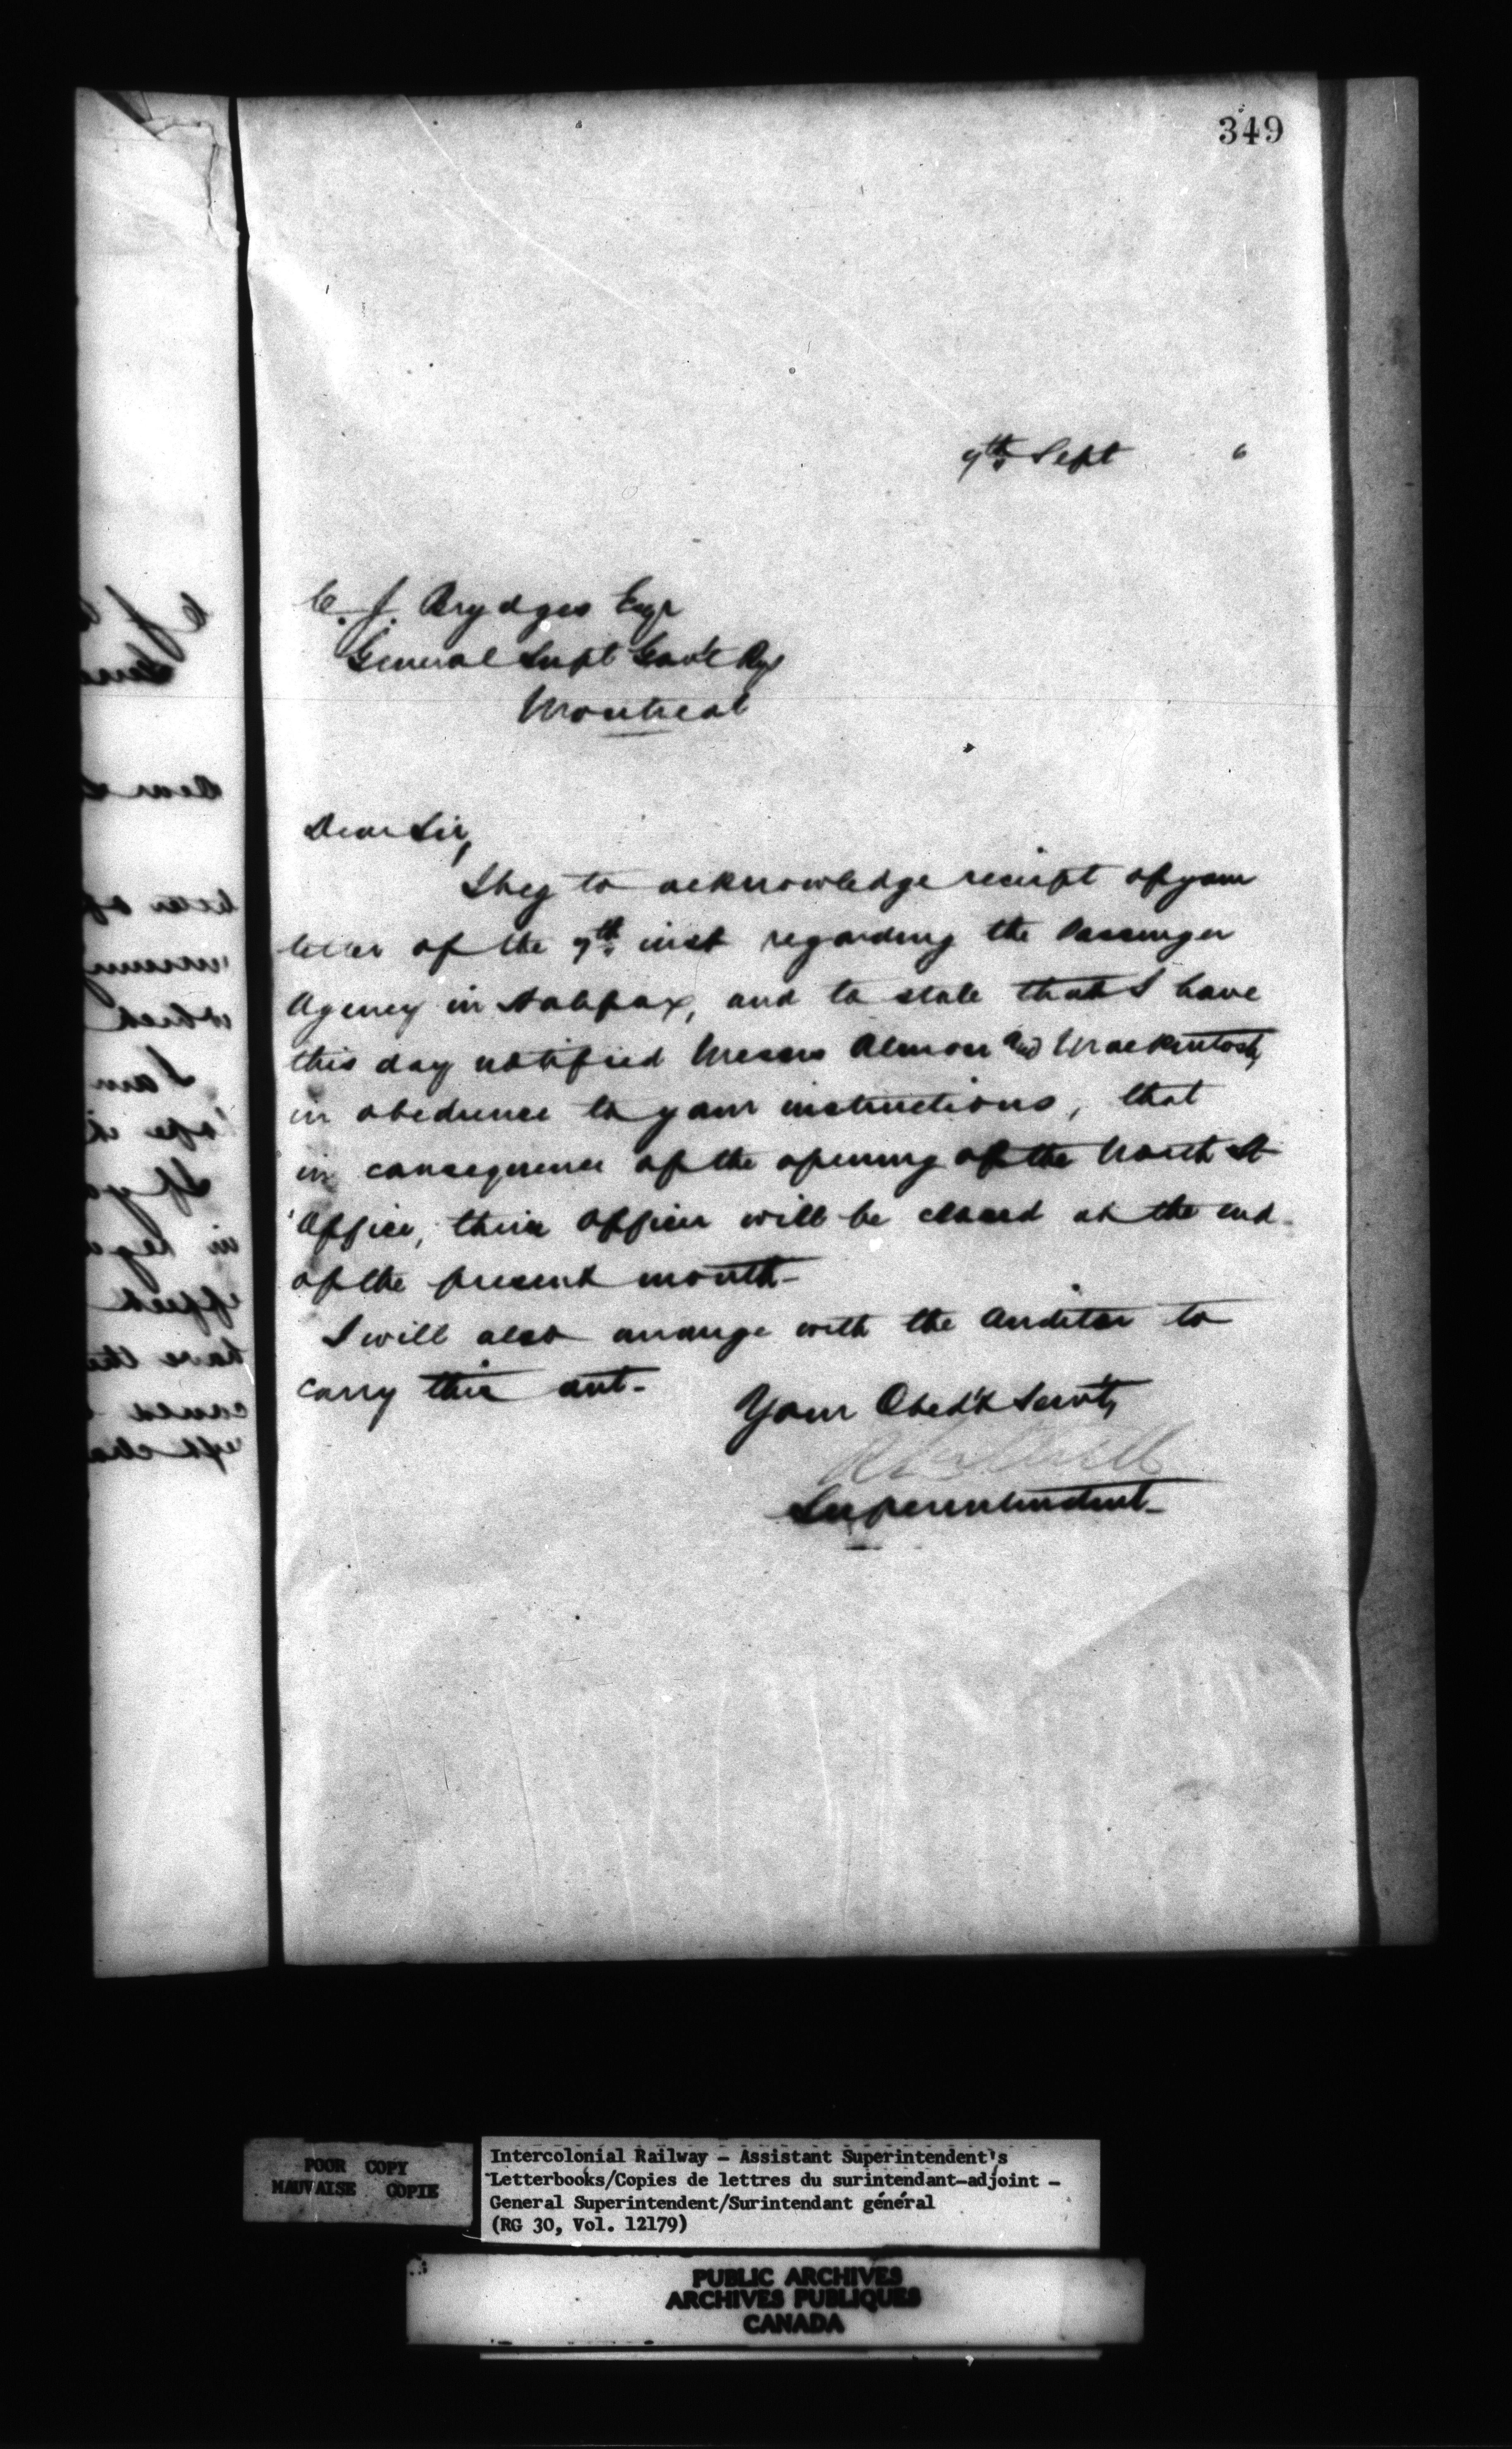 349
9th Sept 6
C. J. Brydges Esqr
General Supt Gov't Rys
Montreal
Dear Sir,
I beg to acknowledge receipt of your
letter of the 7th inst regarding the Passenger
Agency in Halifax, and to state that I have
this day notified Messrs Almon and Mackintosh,
in obedience to your instructions, that
in consequence of the opening of the North St
Office, their Offices will be closed at the end
of the present month-
I will also arrange with the Auditor to
carry this out-
Your Obed't Serv't,
Superintendent-
POOR COPY
MAUVAISE COPIE
Intercolonial Railway - Assistant Superintendent's
Letterbooks/Copies de lettres du surintendant-adjoint -
General Superintendent/Surintendant général
(RG 30, Vol. 12179)
PUBLIC ARCHIVES
ARCHIVES PUBLIQUES
CANADA